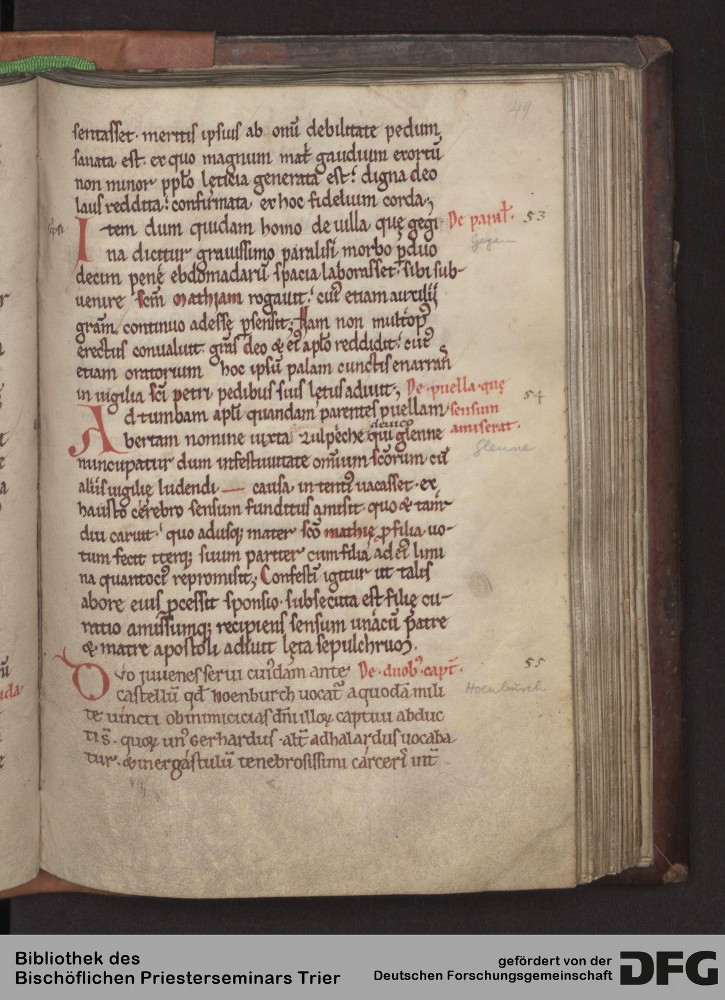 49
sentasset. meritis ipsius ab omī debilitate pedum
sanata est. ex quo magnum mat̄ gaudium exortū
non minor pp̄lo lęticia generata est. digna deo
laus reddita. confirmata ex hoc fidelium corda.,
Item dum quidam homo de uilla quę gegi De paral̄. 53
na dicitur grauissimo paralisi morbo p duo Gegen
decim penę ebdomadarū spacia laborasset. sibi sub-
uenire scm̄ mathiam rogauit. cui' etiam auxilij
gram̄ continuo adessę psensit; Nam non multo p'
erectus conualuit. gras̄ deo & ei' aplo reddidit. cui'
etiam oratorium hoc ipsū palam cunctis enarrans
in uigilia sc̄i petri pedibus suis lętus adiuit., De puella quę 54
Ad tumbam apli quandam parentes puellam sensum
bertam nomine iuxta zulpèche de uico qui glenne amiserat. Glenne
nuncupatur dum in festiuitate omīum sc̄orum cū
aliis uigilię ludendi — causa. in tent' uacasset. ex
hausto cerebro sensum funditus amisit. quo & tam
diu caruit. quo adusq; mater sc̄o mathię p filia uo-
tum fecit iterq; suum pariter cum filia ad ei' limi
na quantoci' repromisit; Confestī igitur ut talis
abore euis pcessit sponsio. subsecuta est filię cu-
ratio amissumq; recipiens sensum unacū patre
& matre apostoli adiuit lęta sepulchrum.
Dvo iuuenes serui cuidam ante De duob' capt̄. 55
castellū qd̄ hoenburch uocat̄ a quodā mili Hoenburch
te uincti ob inimicicias dn̄i illoꝝ captiui abduc
ti s̄. quoꝝ un' Gerhardus. alt̄ adhalardus uocaba
tur. & in ergástulū tenebrosissimi carceri' int̄
Bibliothek des
Bischöflichen Priesterseminars Trier
gefördert von der
Deutschen Forschungsgemeinschaft
DFG